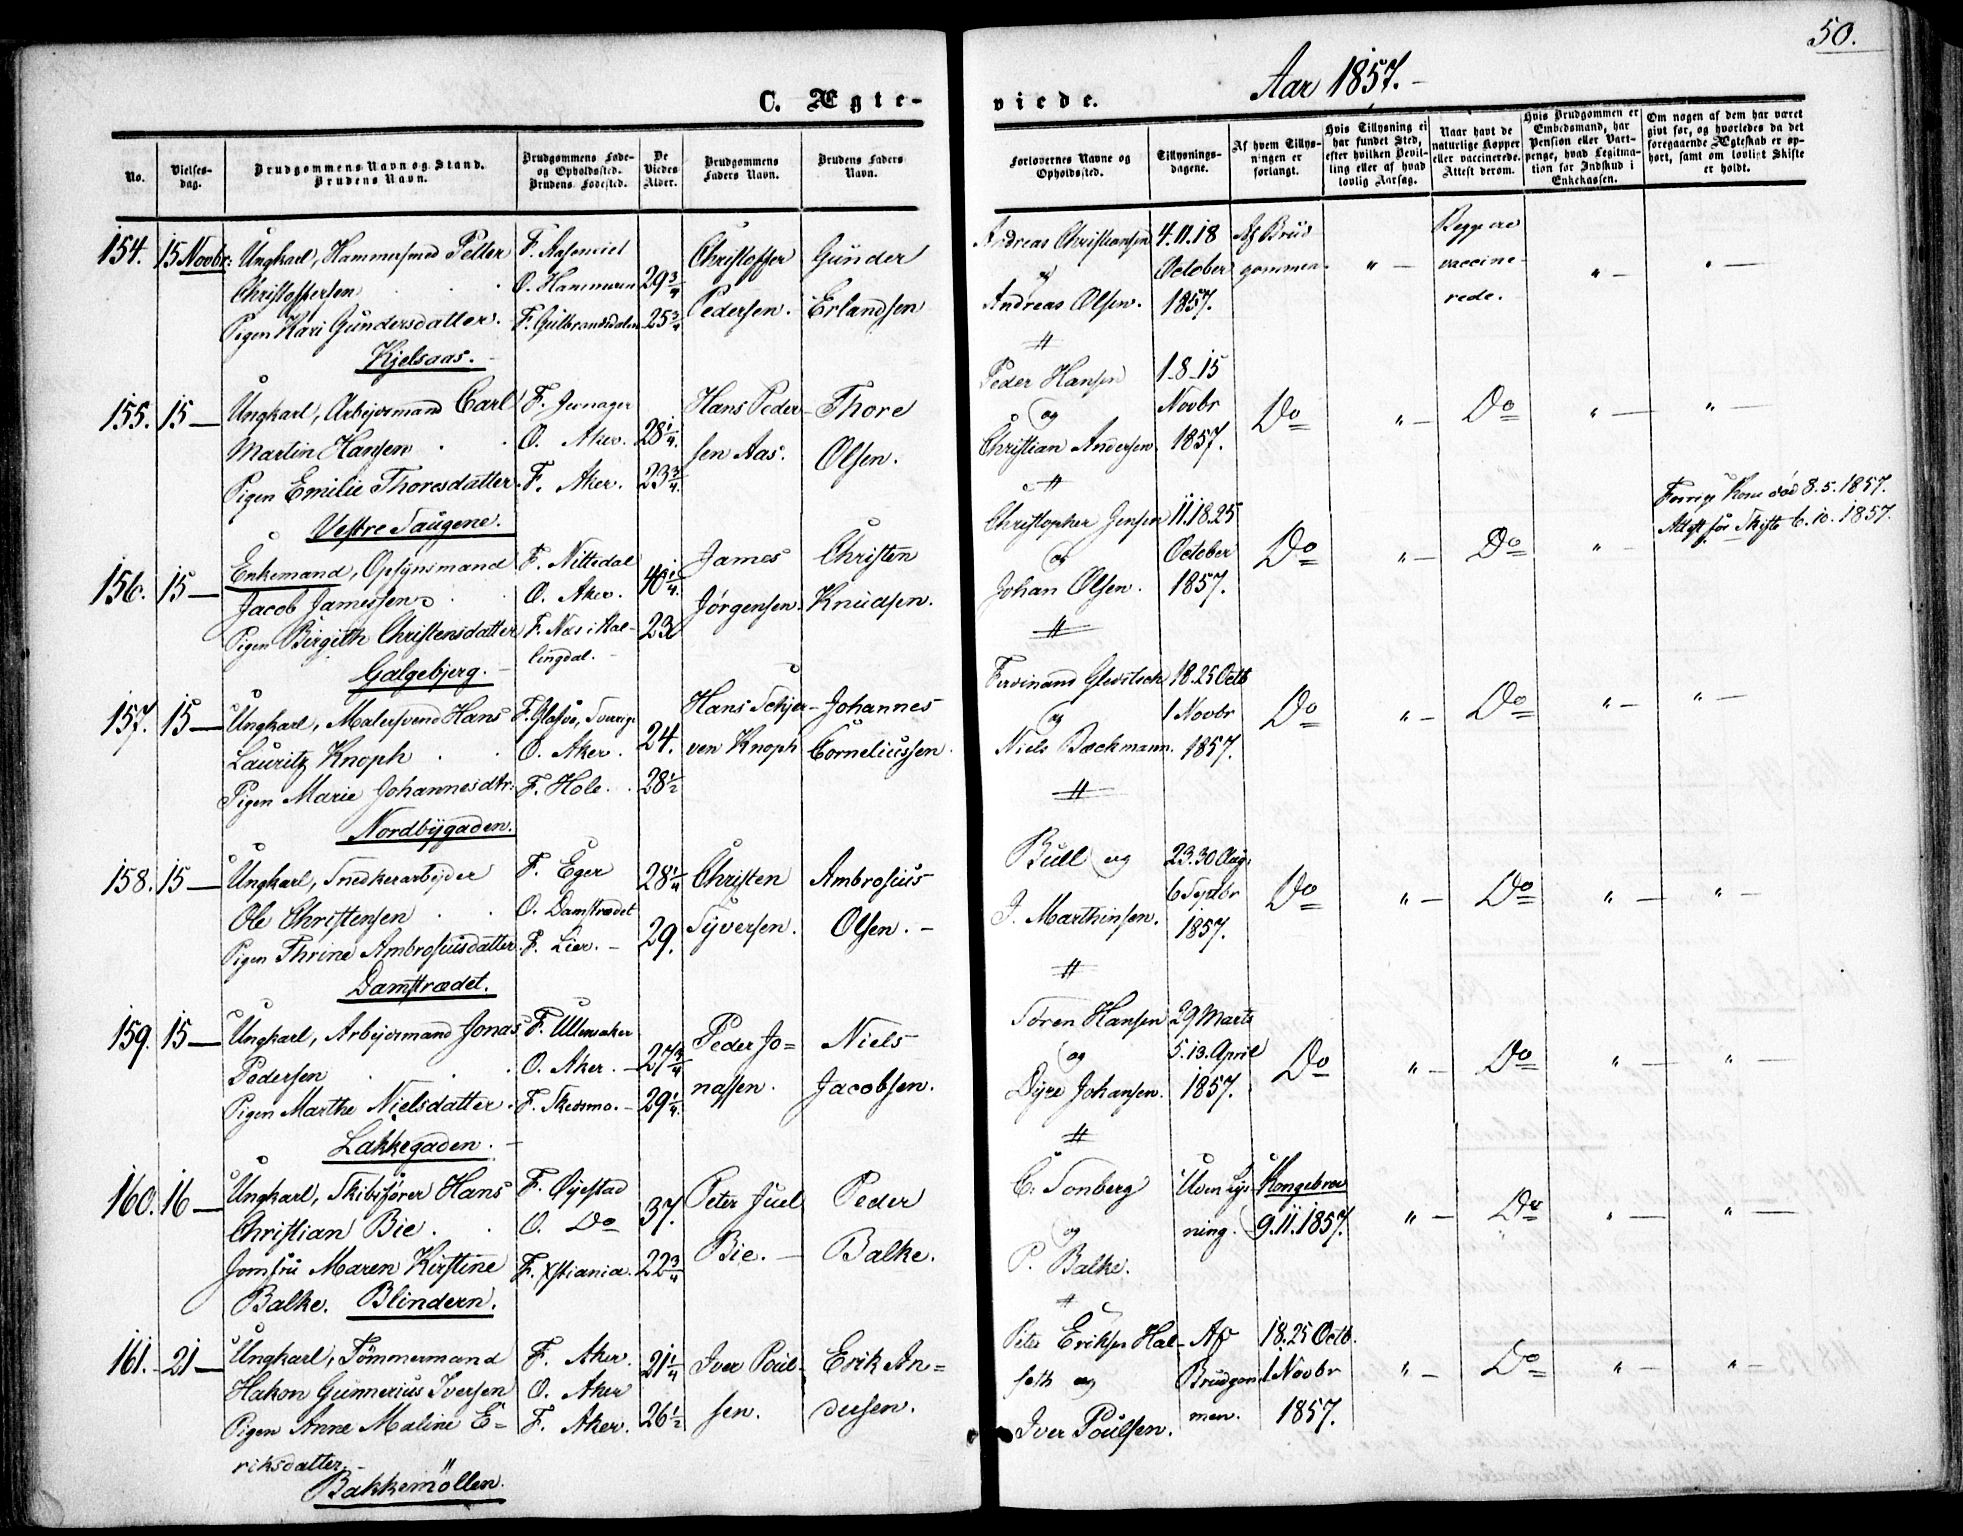 50.
Aar 1857.
C. Ægte-
viede.
No.
Vielses-
dag.
Brudgommens Navn og Stand.
Brudens Navn.
Brudgommens Føde-
og Opholdssted.
Brudens Fødested.
De
Viedes
Alder.
Brudgommens
Faders Navn.
Brudens Faders
Navn.
Forlovernes Navne og
Opholdssted.
Tillysnings-
dagene.
Af hvem Tillys-
ningen er
forlangt.
Hvis Tillysning ei
har fundet Sted,
efter hvilken Bevil-
ling eller af hvad
lovlig Aarsag.
Naar havt de
naturlige Kopper
eller vaccinerede.
Attest derom.
Hvis Brudgommen er
Embedsmand, har
Pension eller Vart-
penge, hvad Legitima-
tion for Indskud i
Enkekassen.
Om nogen af dem har været
gift før, og hvorledes da det
foregaaende Ægteskab er op-
hørt, samt om lovligt Skifte
er holdt.
154. 15 Novbr:
Ungkarl, Hammersmed Petter
Christoffersen
Pigen Kari Gundersdatter.
Kjelsaas.
O. Hammeren
F. Gulbrandsdalen
29 3/4
25 3/4
Christoffer
Pedersen.
Gunder
Erlandsen
Andreas Christiansen
og
Andreas Olsen.
4.11.18
October
1857.
Af Brud
gommen
" —
Begge ere
vaccine-
rede.
" —
" —
155. 15 —
Ungkarl, Arbejdsmand Carl
Martin Hansen
Pigen Emilie Thoresdatter
Vestre Taugene.
F. Jevnager
O. Aker.
F. Aker.
28 1/4.
23 3/4.
Hans Peder-
sen Aas.
Thore
Olsen.
Peder Hansen
og
Christian Andersen.
1.8.15
Novbr
1857.
Do
" —
Do
" —
" —
156. 15 —
Enkemand, Opsynsmand
Jacob Jamessen
Pigen Birgith Christensdatter
Galgebjerg.
F. Nittedal
O. Aker.
F. Næs i Hal-
lingdal.
40 1/4.
23
James
Jørgensen.
Christen
Knudsen.
Christopher Jensen
og
Johan Olsen.
11.18.25
October
1857.
Do
" —
Do
" —
Forrige Kone død 8.5.1857.
Attest for Skifte 6.10.1857.
157. 15 —
Ungkarl, Malersvend Hans
Lauritz Knoph
Pigen Marie Johannesdtr.
Nordbygaden.
O. Aker.
F. Hole.
24.
28 1/2
Hans Schjer-
ven Knoph
Johannes
Corneliussen
Ferdinand
og
Niels Bäckmann.
18.25 Octb
1 Novbr
1857.
Do
" —
Do
" —
" —
158. 15 —
Ungkarl, Snedkerarbejder
Ole Christensen
Pigen Thrine Ambrosiusdatter.
Damstrædet.
F. Eger
O. Damstrædet
F. Lier.
28 1/4
29.
Christen
Syversen.
Ambrosius
Olsen. —
Bull og
J. Marthinsen.
23.30 Aug.
6 Septbr
1857.
Do
" —
Do
" —
" —
159. 15 —
Ungkarl, Arbejdsmand Jonas
Pedersen
Pigen Marthe Nielsdatter.
Lakkegaden.
F. Ullensaker
O. Aker.
F. Skedsmo.
27 3/4
29 1/4.
Peder Jo=
nassen.
Niels
Jacobsen.
Søren Hansen
og
Dyre Johansen.
29 Marts
5.13. April
1857.
Do
" —
Do
" —
" —
160. 16 —
Ungkarl, Skibsfører Hans
Christian Bie.
Jomfru Maren Kirstine
Balke. Blindern.
F. Øyestad
O. Do
F. Xstiania.
37.
22 3/4
Peter Juel
Bie. —
Peder
Balke.
C: Tonberg
og
P. Balke.
Uden Lys-
ning.
Kongebrev
9.11.1857.
" —
Do
" —
" —
161. 21 —
Ungkarl, Tømmermand
Hakon Gunnerius Iversen
Pigen Anne Maline E=
riksdatter.
Bakkemøllen.
F. Aker.
O. Aker
F. Aker.
21 1/4
26 1/2
Iver Poul-
sen.
Erik An=
dersen.
Peter Eriksen Hal-
seth og
Iver Poulsen.
Af
Brudgom
men.
18.25 Octb.
1 Novbr
1857.
" —
Do
" —
" —